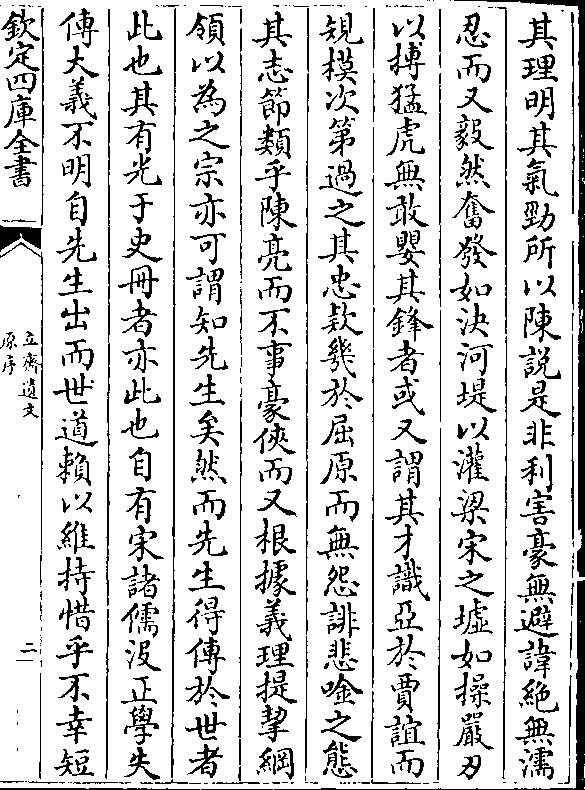 其理明其氣勁所以陳說是非利害豪無避諱絶無濡
忍而又毅然奮發如決河堤以灌梁宋之墟如操嚴刃
以搏猛虎無敢嬰其鋒者或又謂其才識亞於賈誼而
規模次第過之其忠款幾於屈原而無怨誹悲唫之態
其志節類乎陳亮而不事豪俠而又根據義理提挈綱
領以為之宗亦可謂知先生矣然而先生得傳於世者
此也其有光于史冊者亦此也自有宋諸儒沒正學失
傳大義不明自先生出而世道賴以維持惜乎不幸短
欽定四庫全書
立齋遺文
原序
二